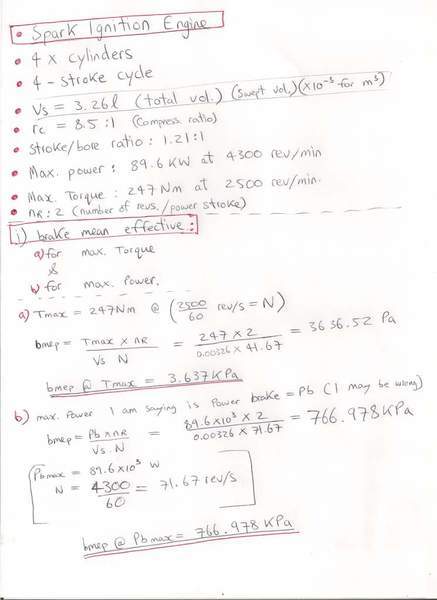 • Spark Ignition Engine
• 4 x cylinders
• 4 - stroke cycle
• Vs = 3.26l (total vol.) (swept vol.) (x10⁻³ for m³)
• rc = 8.5 :1 (Compress ratio)
• Stroke/bore ratio : 1.21:1
• Max. power : 89.6 KW at 4300 rev/min
• Max. Torque : 247 Nm at 2500 rev/min.
• nR : 2 (number of revs. / power stroke)
i) brake mean effective :
a) for max. Torque
&
b) for max. Power.
a) Tmax = 247Nm @ (2500/60 rev/s = N)
bmep = Tmax x nR / Vs N = 247 x 2 / 0.00326 x 41.67 = 3636.52 Pa
bmep @ Tmax = 3.637 KPa
b) max. Power I am saying is Power brake = Pb (I may be wrong)
bmep = Pb x nR / Vs . N = 89.6 x 10³ x 2 / 0.00326 x 71.67 = 766.978 KPa
Pbmax = 89.6 x 10³ W
N = 4300/60 = 71.67 rev/s
bmep @ Pbmax = 766.978 KPa